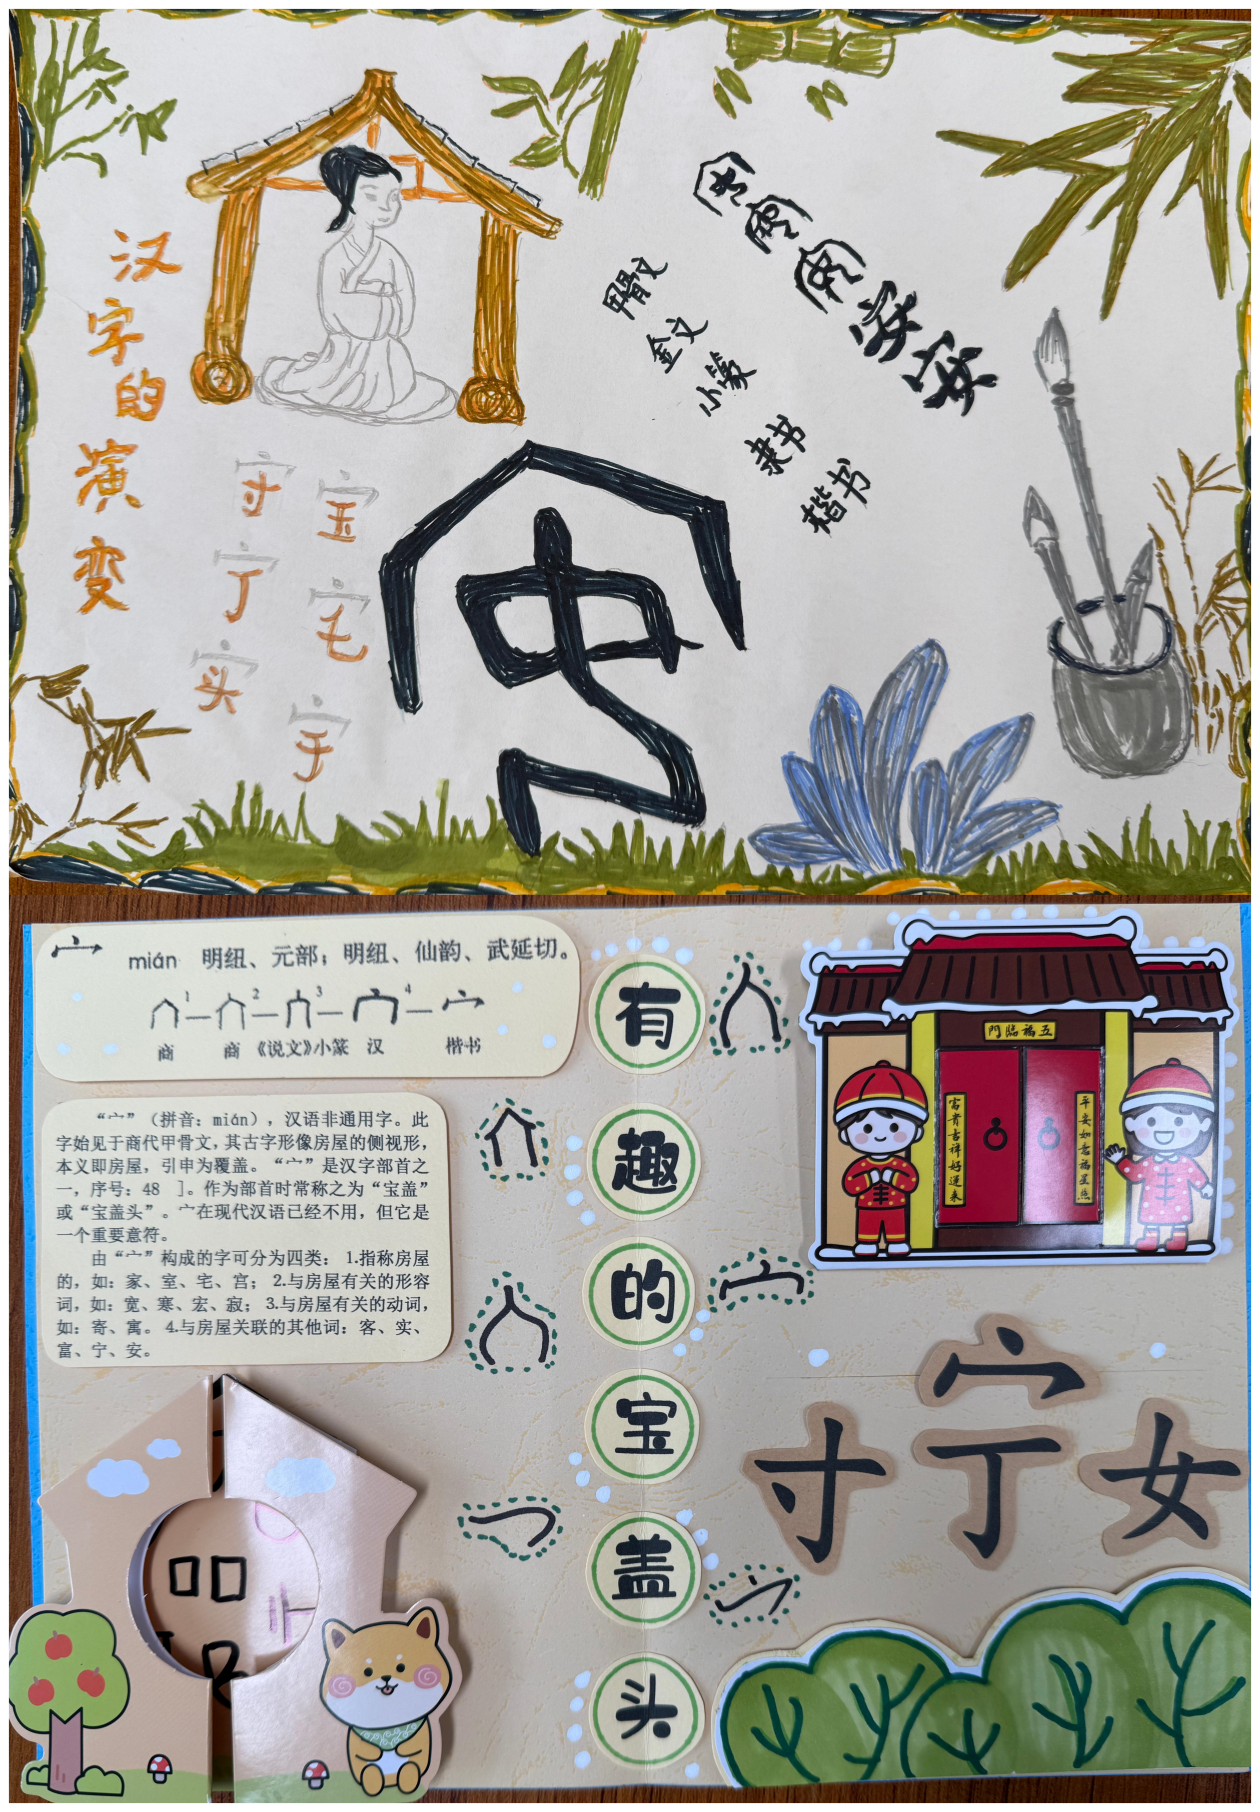 汉字的演变
守
宝
宁
宅
实
宇
甲骨文
金文
小篆
隶书
楷书
安
安
宀 mián 明纽、元部；明纽、仙韵、武延切。
1 2 3 4 宀
商 商 《说文》小篆 汉 楷书
“宀”（拼音：mián），汉语非通用字。此
字始见于商代甲骨文，其古字形像房屋的侧视形，
本义即房屋，引申为覆盖。“宀”是汉字部首之
一，序号：48 ]。作为部首时常称之为“宝盖”
或“宝盖头”。宀在现代汉语已经不用，但它是
一个重要意符。
由“宀”构成的字可分为四类：1.指称房屋
的，如：家、室、宅、宫；2.与房屋有关的形容
词，如：宽、寒、宏、寂；3.与房屋有关的动词，
如：寄、寓。4.与房屋关联的其他词：客、实、
富、宁、安。
有趣的宝盖头
門臨福五
富貴吉祥好運来
平安如意福星照
宀
寸丁女